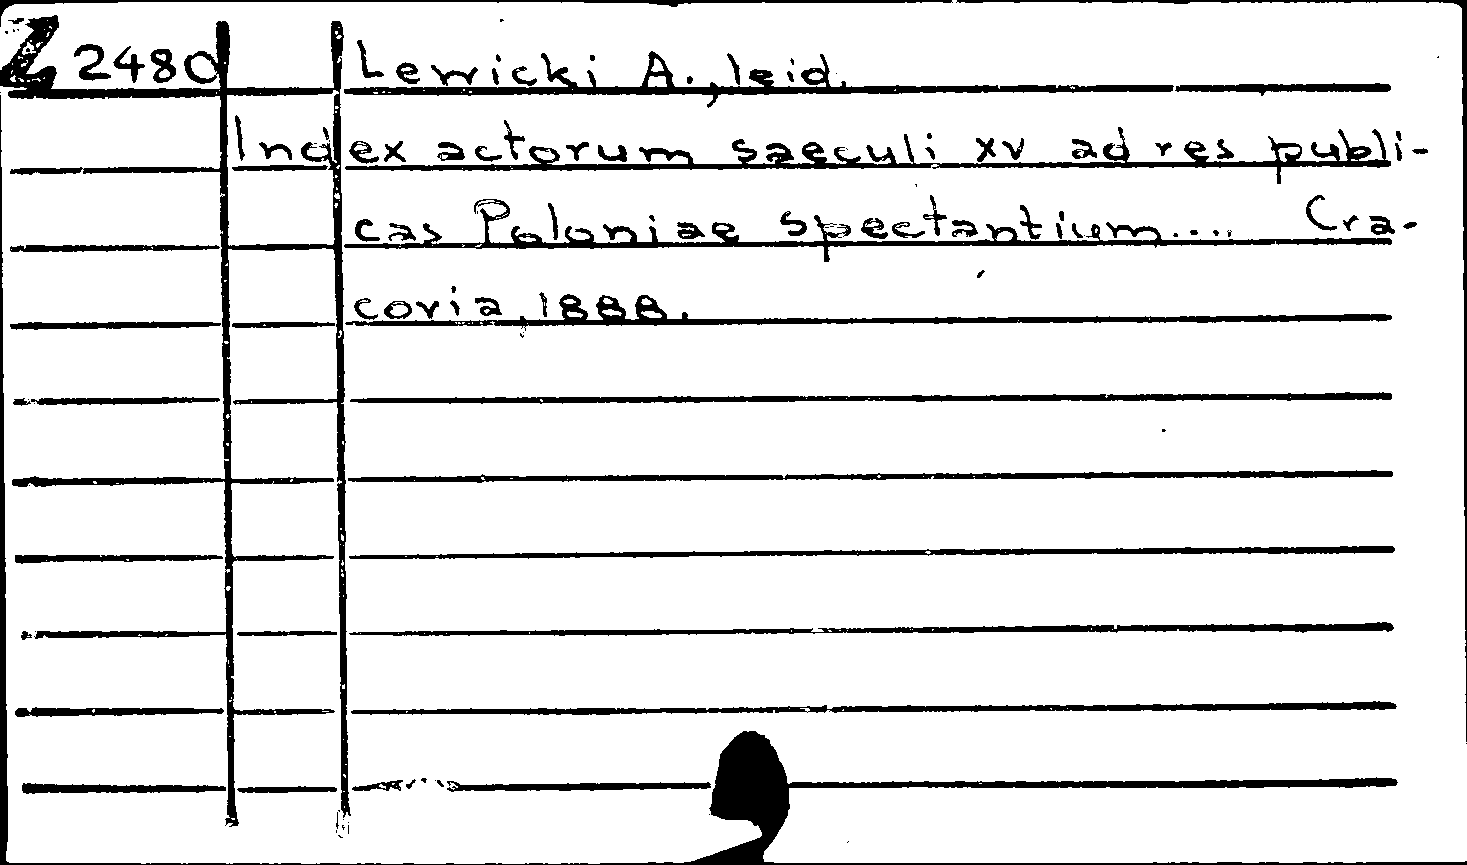 Z 2480 Lewicki A., leid.
Index actorum saeculi XV ad res publi-
cas Poloniae spectantium.... Cra-
covia, 1888.